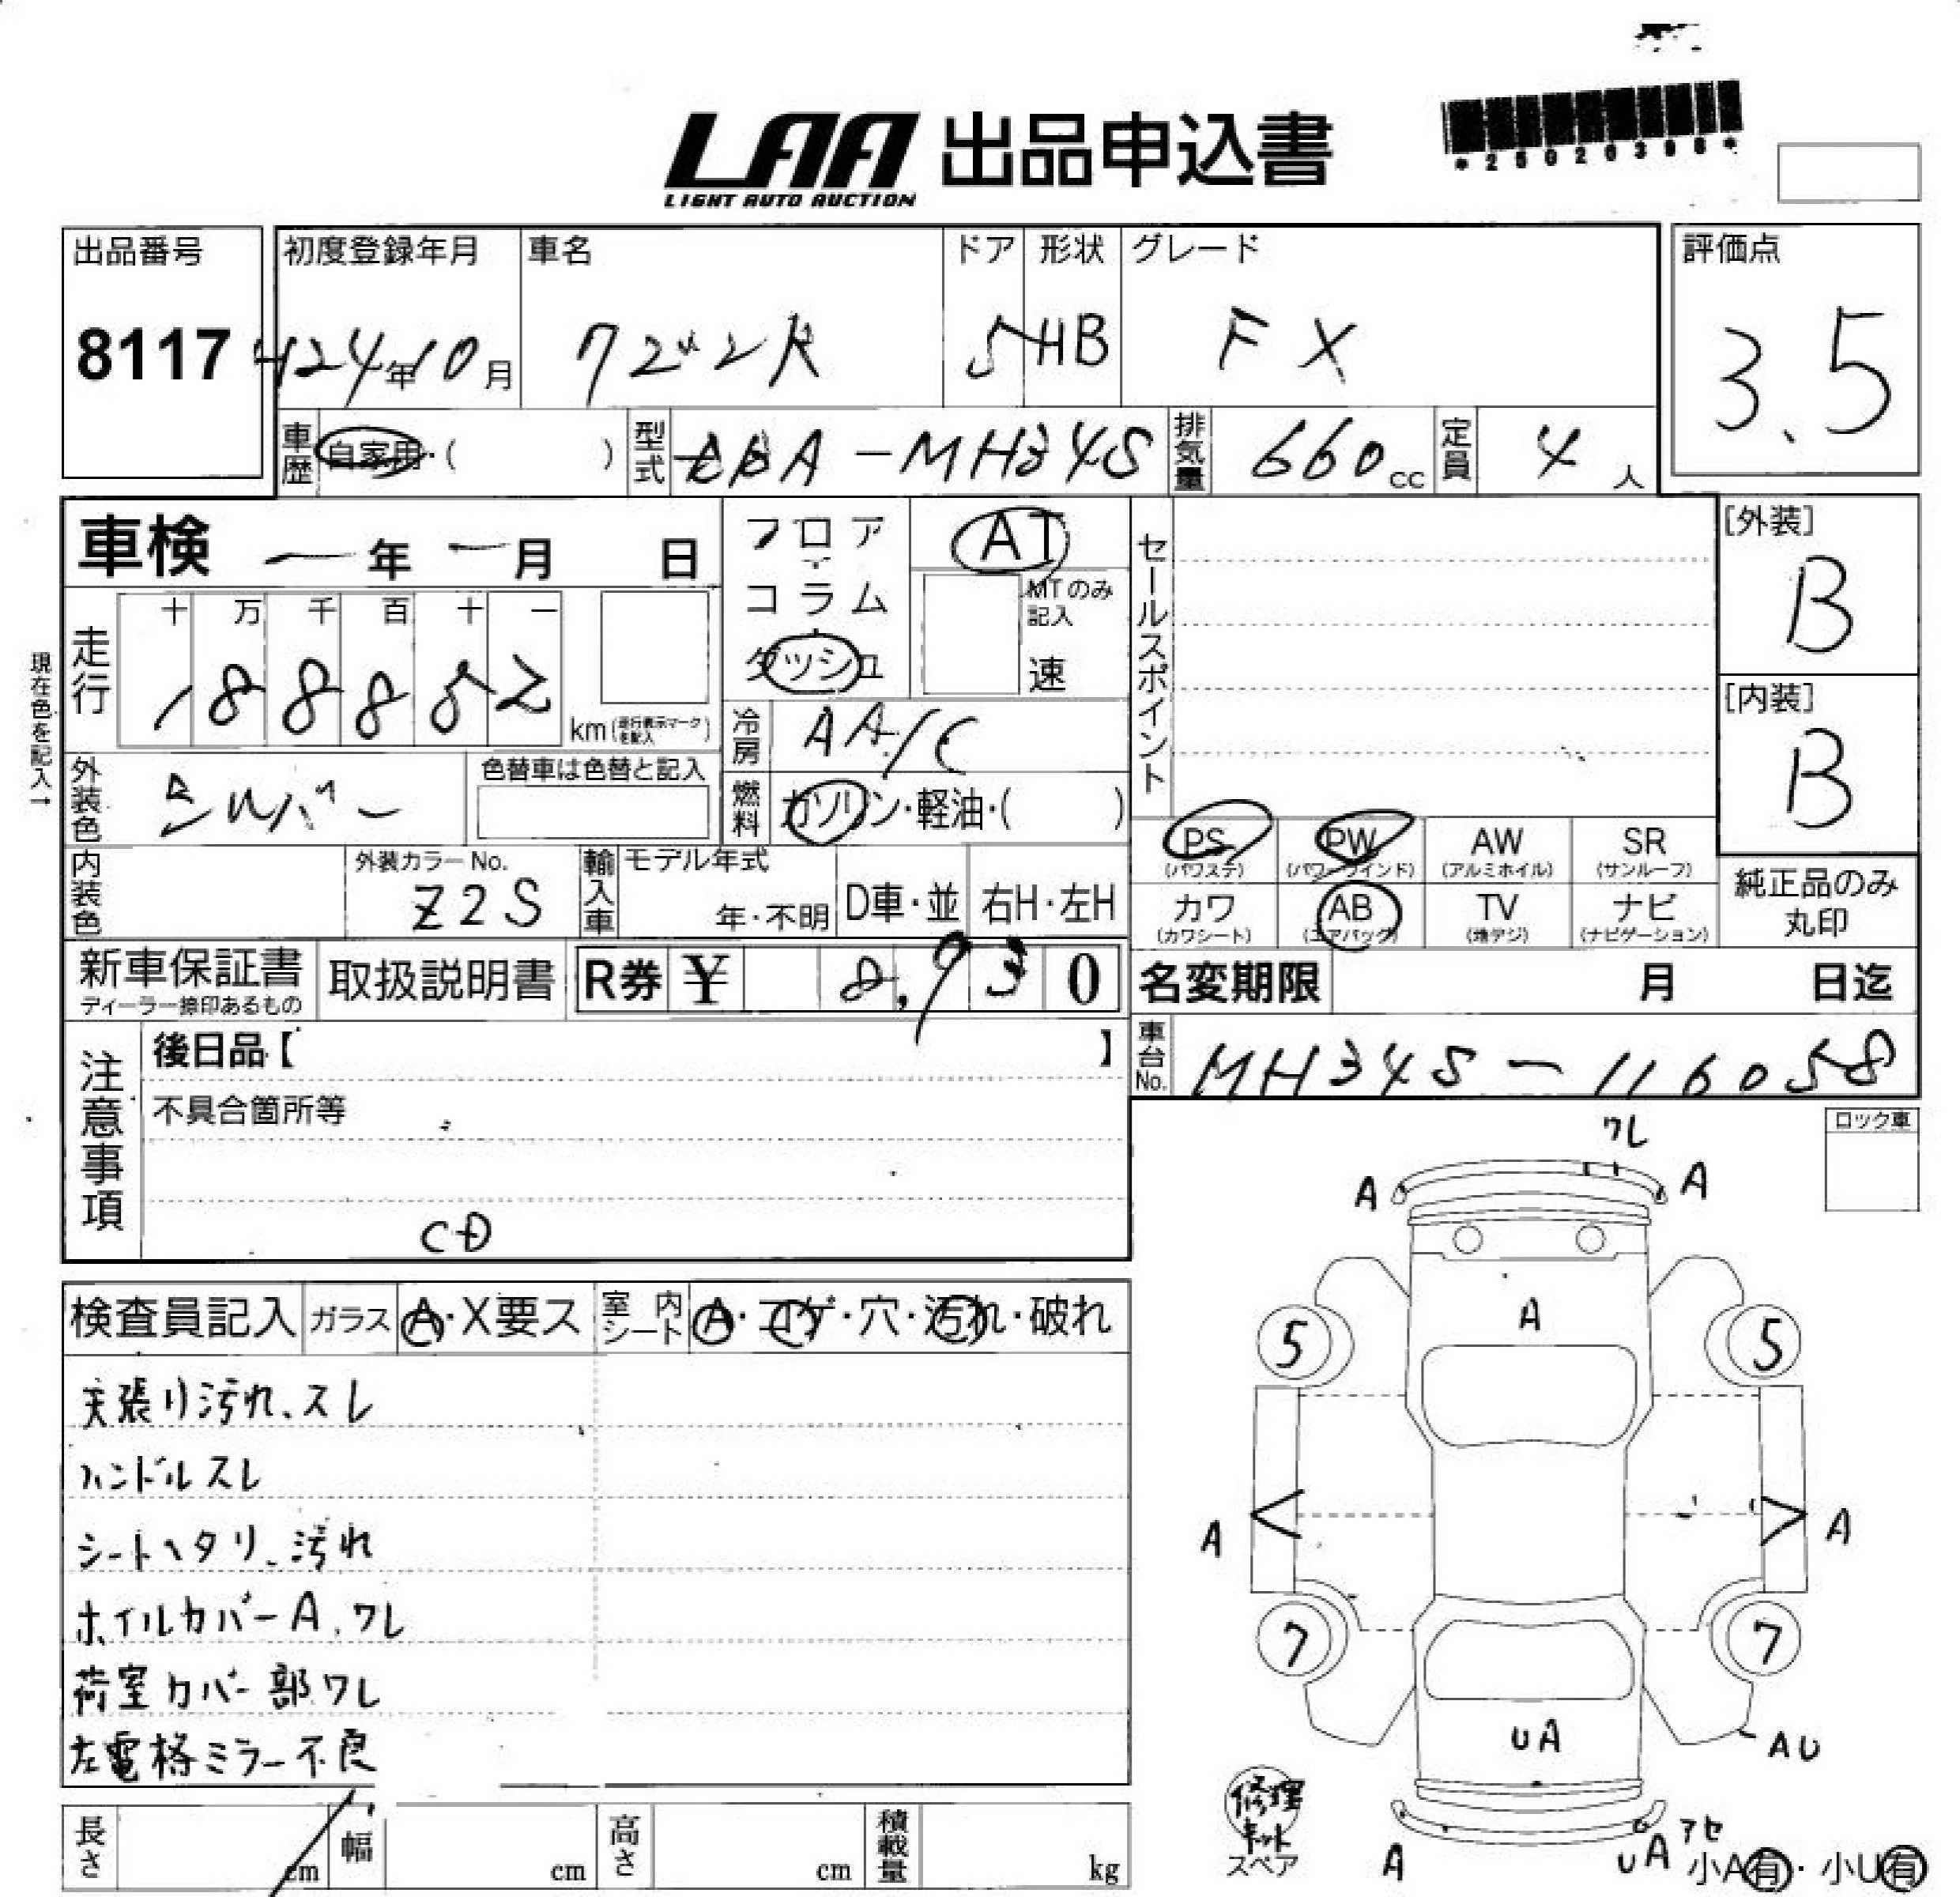 *25020398*
LAA 出品申込書
LIGHT AUTO AUCTION
出品番号 初度登録年月 車名 ドア 形状 グレード 評価点
8117 H24年10月 ワゴンR 5 HB FX 3.5
車歴 自家用・( ) 型式 DBA-MH34S 排気量 660cc 定員 4人
車検 ー年 ー月 日 フロア AT セールスポイント [外装]
コラム MTのみ記入 B
ダッシュ 速
現在色を記入→
走行 十 万 千 百 十 一
188852 km (走行表示マークを記入) [内装]
冷房 AA/C B
外装色 シルバー 色替車は色替と記入 燃料 ガソリン・軽油・( )
PS (パワステ) PW (パワーウインド) AW (アルミホイル) SR (サンルーフ)
内装色 外装カラーNo. Z2S 輸入車 モデル年式 年・不明 D車・並 右H・左H
カワ (カワシート) AB (エアバッグ) TV (地デジ) ナビ (ナビゲーション) 純正品のみ丸印
新車保証書 取扱説明書 R券 ¥ 8,930 名変期限 月 日迄
ディーラー捺印あるもの
車台No. MH34S-116058
注意事項 後日品【 】
不具合箇所等
CD
ロック車
ワレ
A A
検査員記入 ガラス A・X要ス 室内シート A・コゲ・穴・汚れ・破れ
A
5 5
天張り汚れ、スレ
ハンドルスレ
シートヘタリ、汚れ
A A
ホイルカバーA、ワレ
7 7
荷室カバー部ワレ
左電格ミラー不良
UA
AU
修理キット
スペア
A UA アセ
小A有・小U有
長さ cm 幅 cm 高さ cm 積載量 kg